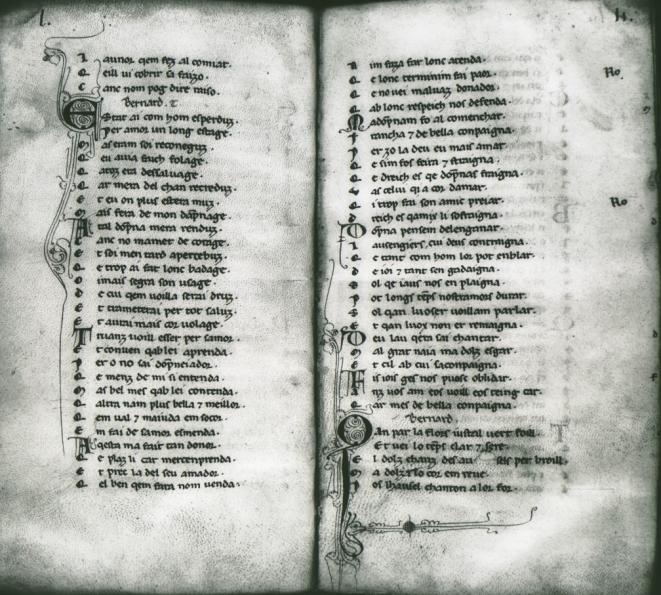 aunor qem fez al comiat.
e ill ui cobrir sa faizo.
c anc nom pog dire raiso.
Bernard.
Estat ai com hom esperduz.
Per amor un long estage.
M as eram soi reconeguz.
Q eu auia faich folage.
C ar mera del chan recreduz.
E t eu on plus estera muz.
M ais fera de mon dapnage.
A tal dopna mera renduz.
Q anc no mamet de corage.
E t soi men tard aperceubuz.
Q e trop ai fait lonc badage.
O imais segra son usage.
D e cui qem uoilla serai druz.
E t trametrai per tot saluz.
E t aurai mais cor uolage.
T ruanz uoill esser per samor.
E t conuen qab lei aprenda.
P er o no sai dopneiador.
Q e menz de mi si entenda.
M as bel mes qab lei contenda.
Q altra nam plus bella 7 meillor.
Q em ual 7 maiuda em socor.
E m fai de samor esmenda.
A qesta ma fait tan donor.
E plaz li car mercenprenda.
E t prec la del seu amador.
Q el ben qem fara nom uenda.
N im faza far lonc atenda.
Q e lonc terminim fai paor.
Q e no uei maluaz donador.
Q ab lonc respeich nos defenda.
Ma dopnam fo al comenchar.
Francha 7 de bella conpaigna.
P er zo la deu eu mais amar.
Q e sim fos fera 7 straigna.
Q e dreich es qe dopnas fraigna.
V as celui qi a cor damar.
Q i trop fai son amic preiar.
D reich es qamix li sofraigna.
Dopna pensem delenganar.
L ausengiers, cui deus contraigna.
Q e tant com hom lor pot enblar.
D e ioi 7 tant sen gadaigna.
S ol qe iaus nos en plaigna.
P ot longs temps nostramors durar.
S ol qan luos er uoillam parlar.
E t qan luox non er remaigna.
D eu lau qera sai chantar.
M al grat naia ma dolz esgar.
E t cil ab cui sacompaigna.
F is iois ges nos puosc oblidar.
A nz uos am eos uoill eos teing car.
C ar mes de bella conpaigna.
Bernard.
Qan par la flors iustal uert foill.
Et uei lo temps clar 7 sere.
E l dolz chanz des auzels per broill.
M a dolza lo cor em reue.
P os lhausel chanton a lor for.
Ro.
Ro